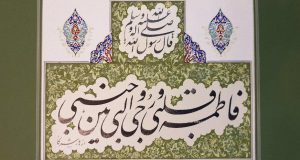 قال رسول الله صلی الله علیه و آله وسلم
فاطمة قلبی و روحی التی بین جنبی